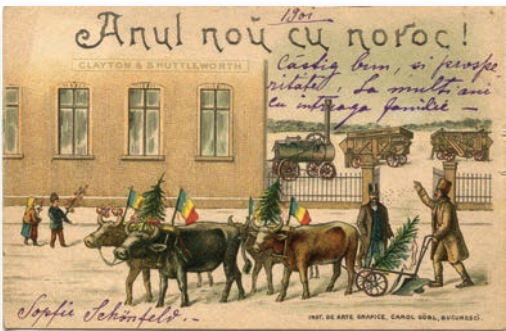 1901
Anul noŭ cu noroc!
CLAYTON & SHUTTLEWORTH
Castig bun, si prospe
ritate, La multi ani
cu intreaga familie —
Sopfie Schönfeld. —
INST. DE ARTE GRAFICE, CAROL GÖBL, BUCURESCI.